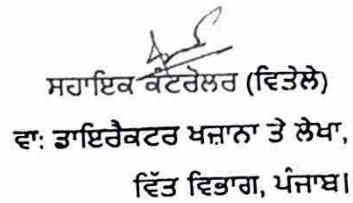 ਸਹਾਇਕ ਕੰਟਰੋਲਰ (ਵਿਤੇਲੇ)
ਵਾ: ਡਾਇਰੈਕਟਰ ਖਜ਼ਾਨਾ ਤੇ ਲੇਖਾ,
ਵਿੱਤ ਵਿਭਾਗ, ਪੰਜਾਬ।